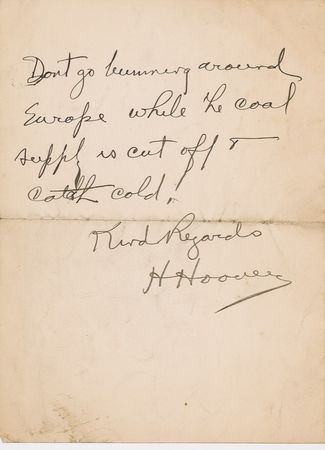 Dont go bumming around
Europe while the coal
supply is cut off &
catch cold.
Kind Regards
H Hoover